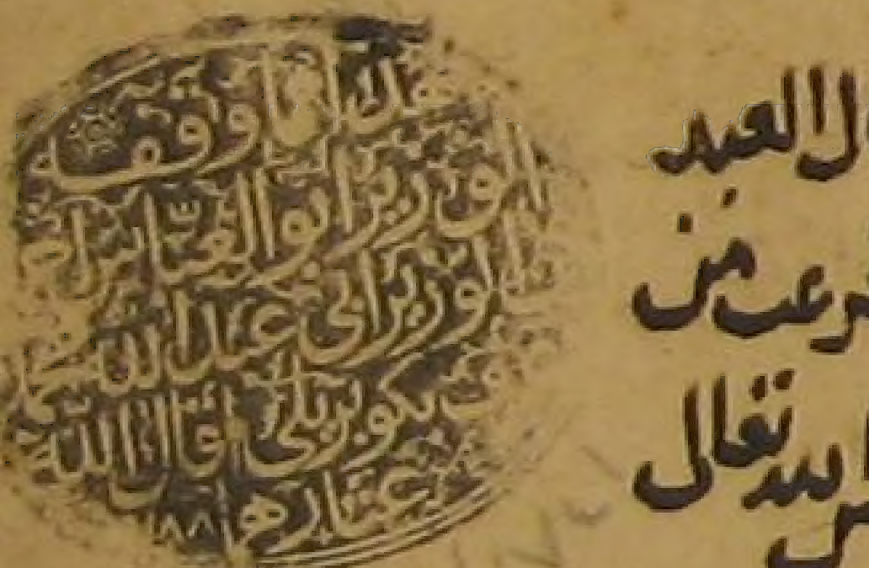 هذا ما وقفه
الوزير ابو العباس احمد
بن الوزير ابي عبد الله محمد
عرف بكوبريلي اقال الله
عثارهما ٨٨
العبد
من
الله تعالى